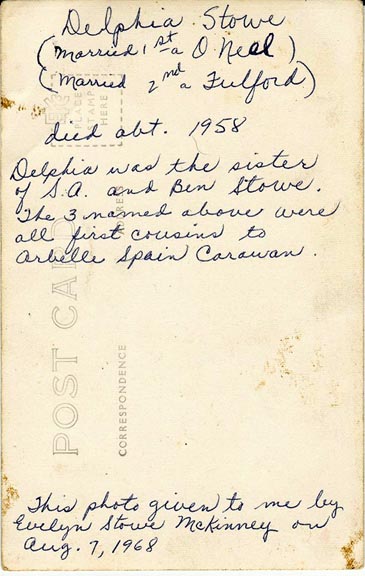 Delphia Stowe
(Married 1st a O'Neal)
(Married 2nd a Fulford)
died abt. 1958
Delphia was the sister
of S.A. and Ben Stowe.
The 3 named above were
all first cousins to
Arbelle Spain Carawan.
This photo given to me by
Evelyn Stowe McKinney on
Aug. 7, 1968
PLACE
STAMP
HERE
ADDRESS
POST CARD
CORRESPONDENCE